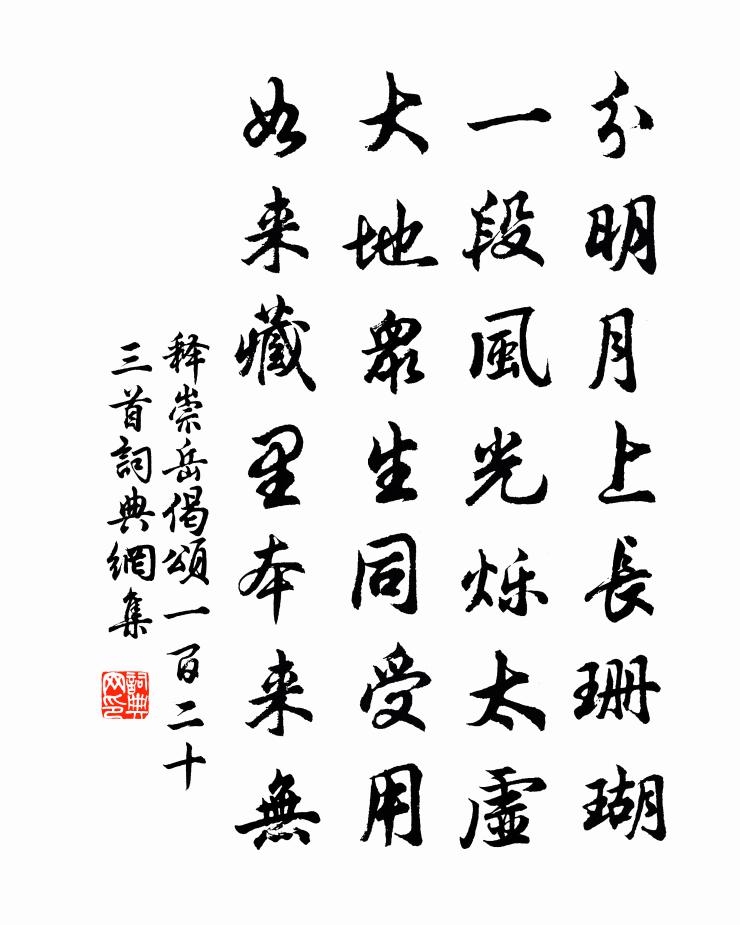 分明月上長珊瑚
一段風光烁太虛
大地衆生同受用
如来藏里本来無
释崇岳偈頌一百二十
三首詞典網集
詞典
网印